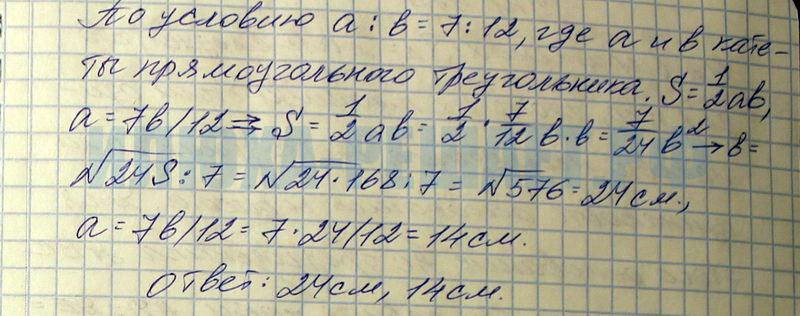 По условию a : b = 7 : 12, где a и b кате-
ты прямоугольного треугольника. S = 1/2 ab,
a = 7b/12 ⇒ S = 1/2 ab = 1/2 · 7/12 b · b = 7/24 b² → b =
√24S : 7 = √24 · 168 : 7 = √576 = 24 см.,
a = 7b/12 = 7 · 24/12 = 14 см.
Ответ: 24 см, 14 см.